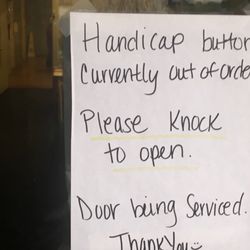 Handicap button
Currently out of orde
Please Knock
to open.
Door being Serviced.
Thank You